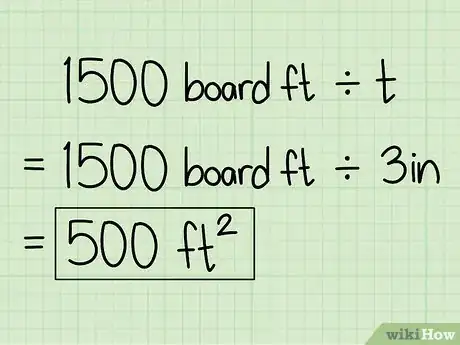 1500 board ft ÷ t
= 1500 board ft ÷ 3in
= 500 ft²
wikiHow